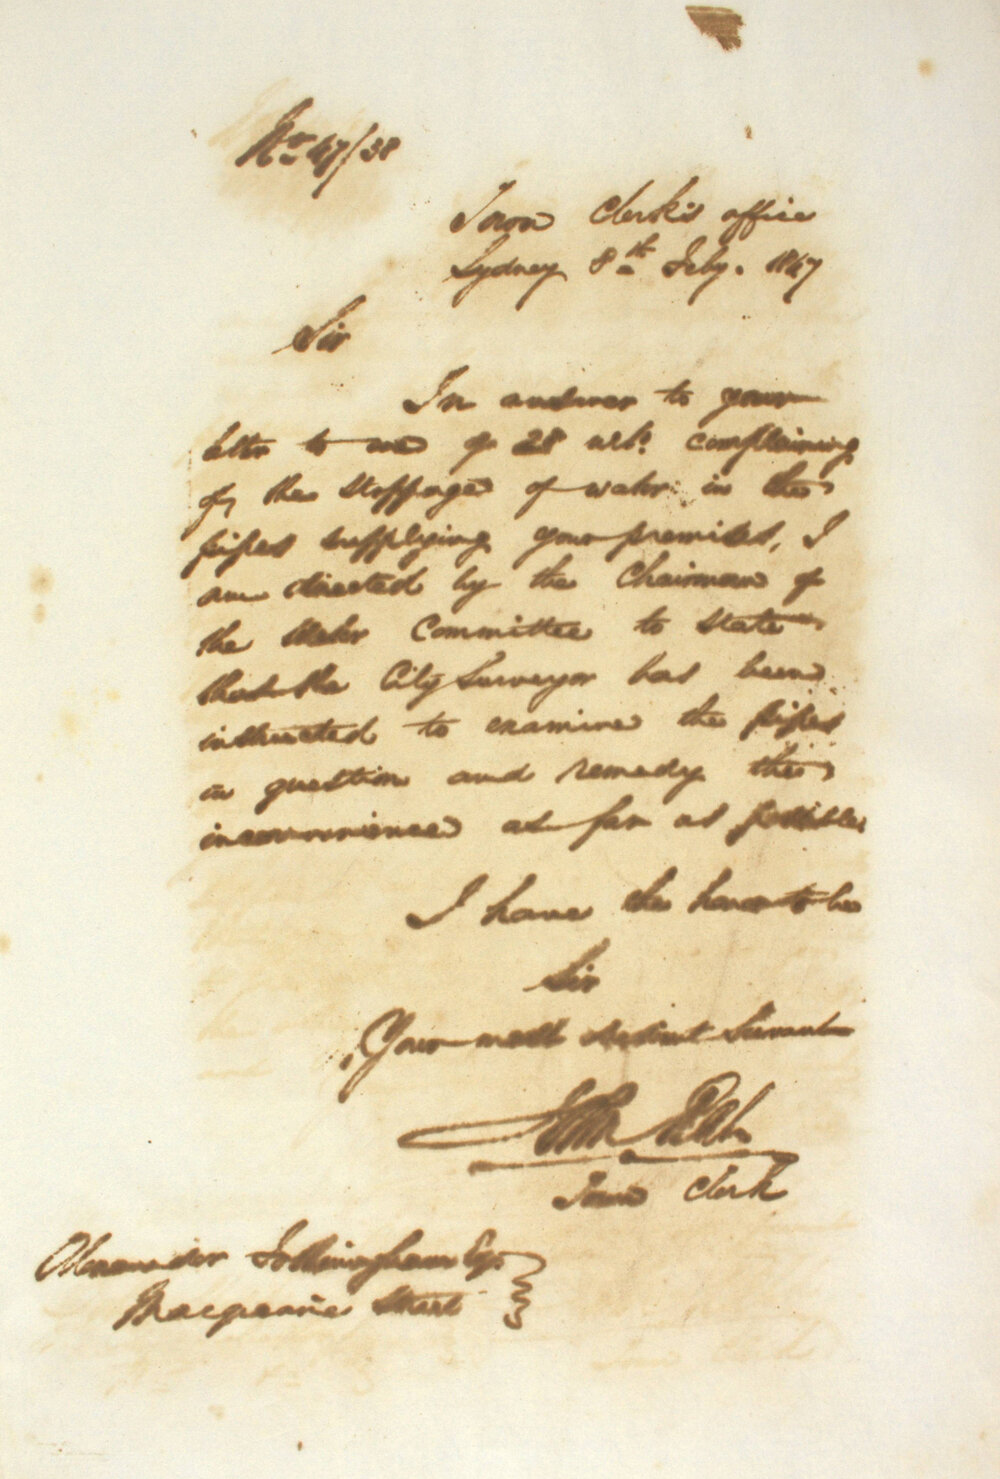 No 47/38
Town Clerk's office
Sydney 8th Feby. 1847
Sir
In answer to your
letter to me of 28 ulto. complaining
of the stoppage of water in the
pipes supplying your premises, I
am directed by the Chairman of
the Water Committee to state
that the City Surveyor has been
instructed to examine the pipes
in question and remedy the
inconvenience as far as possible
I have the honor to be
Sir
Your most obedient Servant
John
Town Clerk
Alexander Esq.
Macquarie Street